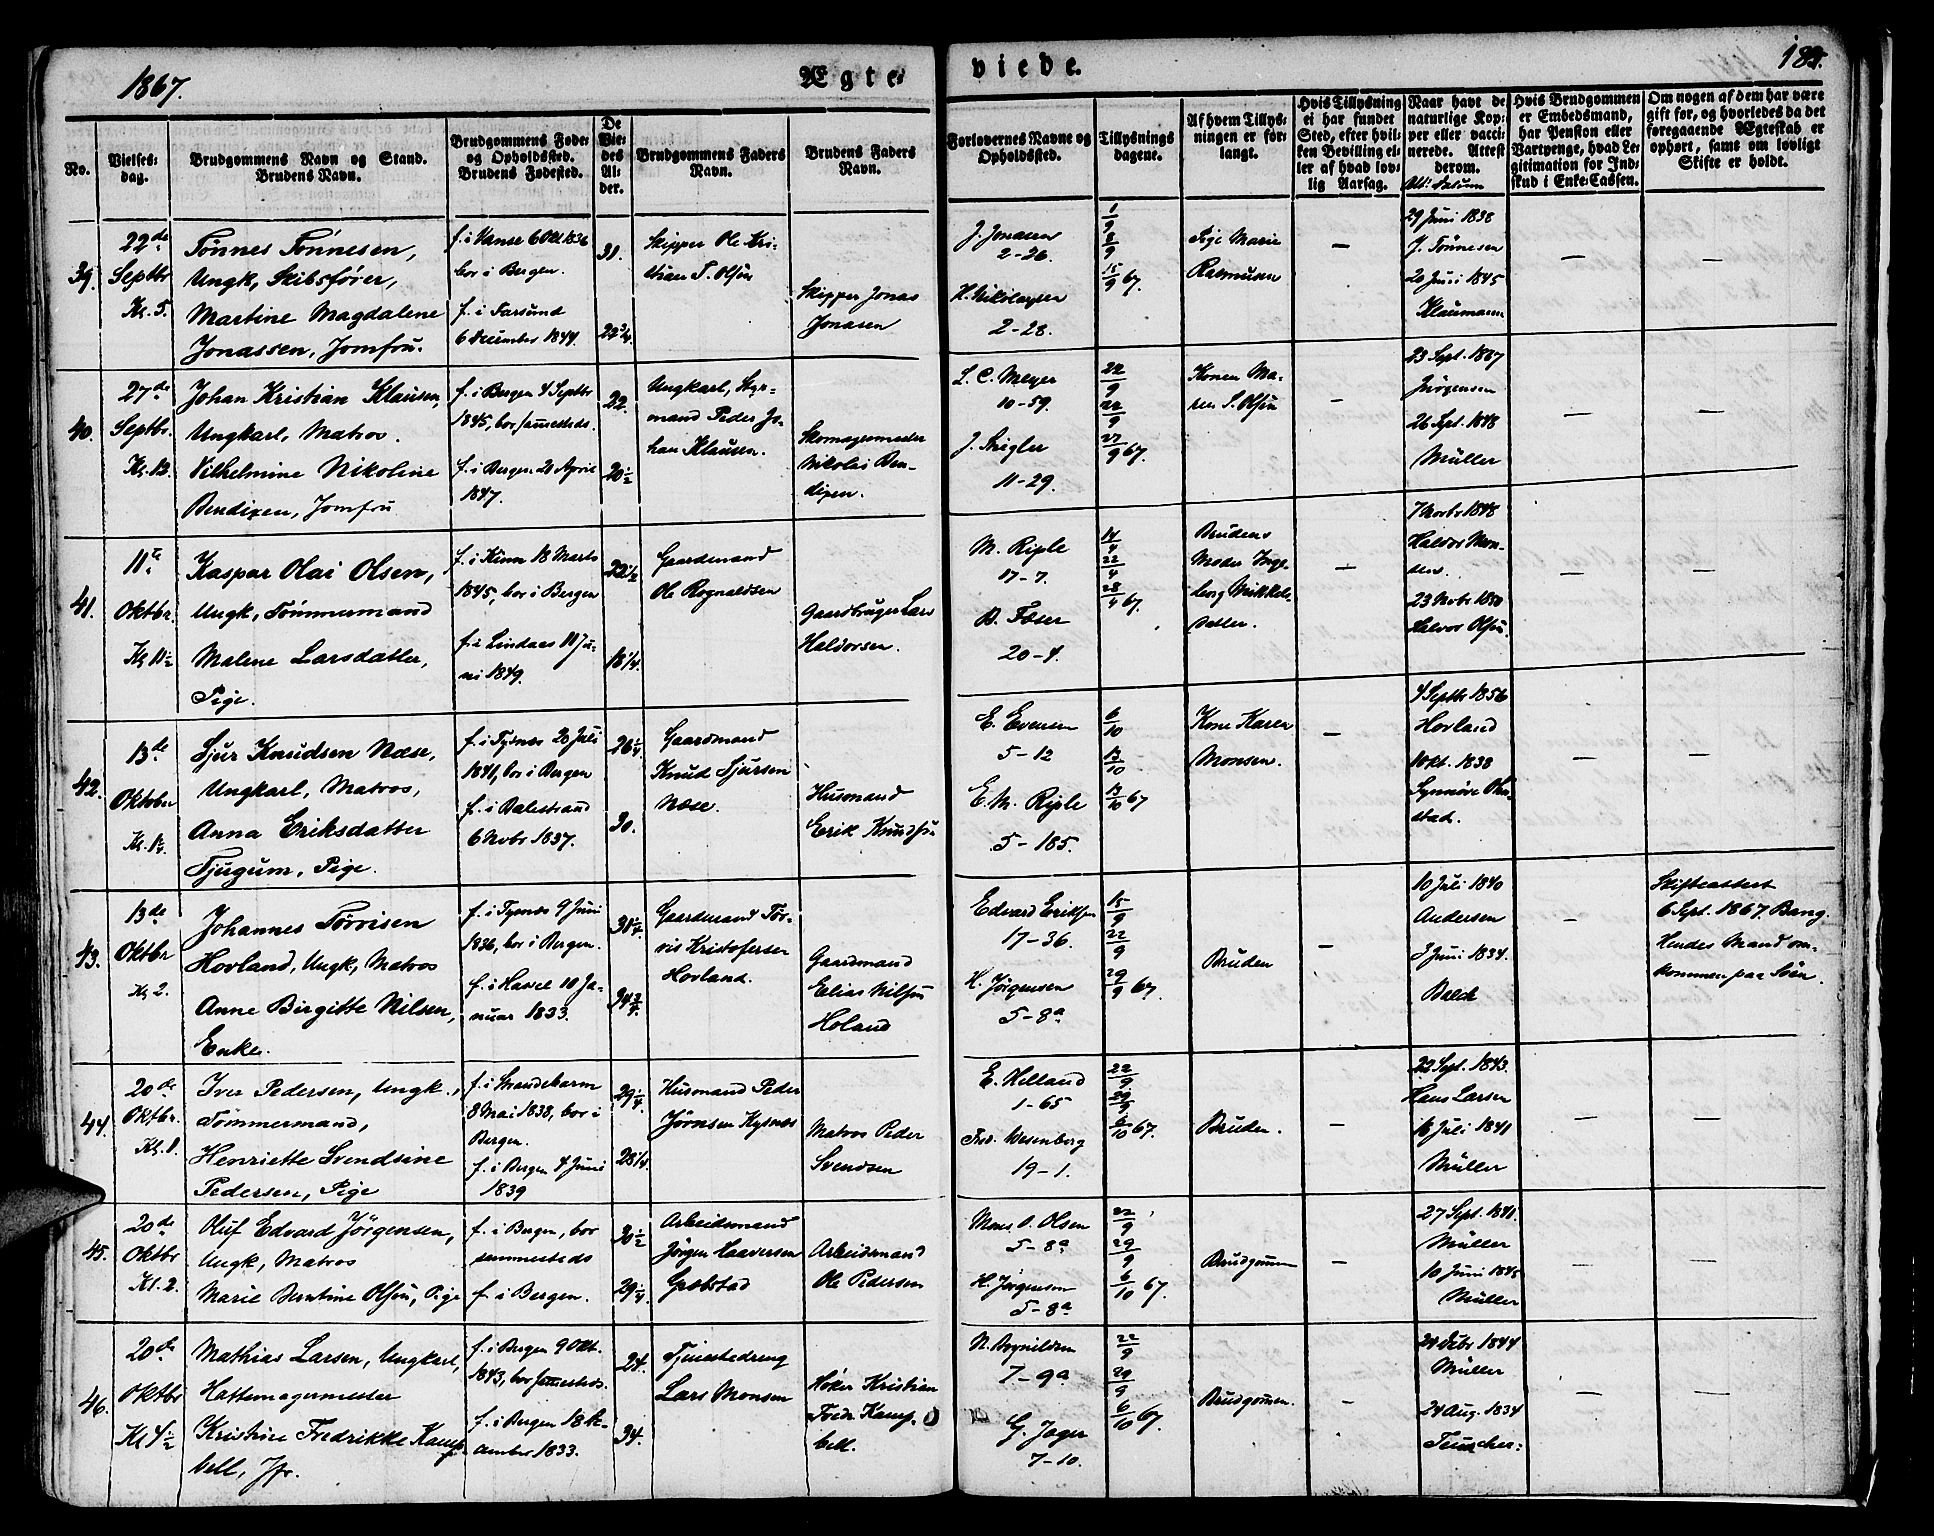 1867.
Ægte
viede.
189.
No.
Vielses-
dag.
Brudgommens Navn og Stand.
Brudens Navn.
Brudgommens Føde-
og Opholdssted.
Brudens Fødested.
De
Vie-
des
Al-
der.
Brudgommens Faders
Navn.
Brudens Faders
Navn.
Forlovernes Navne og
Opholdssted.
Tillysnings
dagene.
Af hvem Tillys-
ningen er for-
langt.
Hvis Tillysning
ei har fundet
Sted, efter hvil-
ken Bevilling el-
ler af hvad lov-
lig Aarsag.
Naar havt de
naturlige Kop-
per eller vacci-
nerede. Attest
derom.
Att: datum
Hvis Brudgommen
er Embedsmand,
har Pension eller
Vartpenge, hvad Le-
gitimation for Ind-
skud i Enke-Cassen.
Om nogen af dem har være
gift før, og hvorledes da det
foregaaende Ægteskab er
ophørt, samt om lovligt
Skifte er holdt.
39.
22de
Septbr
Kl. 5.
Tønnes Tønnesen,
Ungk, Skibsfører,
Martine Magdalene
Jonassen, Jomfru.
f. i Vanse 6 Okt 1836
bor i Bergen.
f. i Farsund
6 December 1844
31.
22 3/4.
Skipper Ole Kri-
stian T. Olsen
Skipper Jonas
Jonasen
J. Jonasen
2-26.
H. Nikolaysen
2-28.
1/9
8/9
15/9 67.
Pige Marie
Rasmusen
—
29 Juni 1838
J. Tønnesen
20 Juni 1845
Klaumann
—
40.
27de
Septbr.
Kl. 12.
Johan Kristian Klausen,
Ungkarl, Matros.
Vilhelmine Nikoline
Bendixen, Jomfru
f. i Bergen 4 Septbr
1845, bor sammesteds.
f. i Bergen 20 April
1847.
22.
20 1/2
Ungkarl, Styr-
mand Peder Jo-
han Klausen.
Skomagermester
Nikolai Ben-
dixen.
L. C. Meyer
10-59.
J. Stigler
11-29.
22/9
22/9
27/9 67.
Konen Ma-
ren S. Olsen
—
23 Sept. 1867
Jørgensen
26 Sept. 1848
Müller
—
—
41.
11te
Oktbr.
Kl 11 1/2
Kaspar Olai Olsen,
Ungk, Tømmermand
Malene Larsdatter,
Pige.
f. i Kinn 18 Marts
1845, bor i Bergen
f. i Lindaas 11 Ju-
ni 1849.
22 1/2
18 1/4.
Gaardmand
Ole Rognaldsen
Gaardbruger Lars
Haldorsen.
M. Riple
17-7.
B. Tøser
20-4.
14/4
22/4
28/4 67.
Brudens
Moder Inge-
borg Mikkels-
datter.
—
7 Novbr 1848
Haldor Mon-
sen.
23 Novbr 1850
Halvor Olsen.
—
—
42.
13de
Oktober
Sjur Knudsen Næse,
Ungkarl, Matros,
Anna Eriksdatter
Tjugum, Pige.
f. i Tysnes 20 Juli
1841, bor i Bergen
f. i Balestrand
6 Novbr 1837.
26 1/4
30.
Gaardmand
Knud Sjursen
Næse
Husmand
Erik Knudsen
E. Evensen
5-12
E. M. Riple
5-185.
6/10
13/10
13/10 67
Kone Karen
Monsen.
—
4 Septbr 1856
Hovland
1 Okt. 1838
—
—
43.
13de
Oktbr
Kl 2.
Johannes Tørrisen
Hovland, Ungk, Matros
Anne Birgitte Nilsen,
Enke.
f. i Tysnes 9 Juni
1836, bor i Bergen.
f. i Havel 10 Ja-
nuar 1833.
31 1/4.
34 3/4.
Gaardmand Tør-
ris Kristofersen
Hovland.
Gaardmand
Elias Nilsen
Holand
Edvard Eriksen
17-36.
H. Jørgensen
5-8a
15/9
22/9
29/9 67.
Bruden
—
10 Juli 1840
Andersen
3 Juni 1834.
Balch
—
Skifteattest
6 Sept. 1867 Bang.
Hendes Mand om-
kommen paa Søen.
44.
20de
Oktbr.
Kl. 1.
Iver Pedersen, Ungk.,
Tømmermand,
Henriette Svendsine
Pedersen, Pige
f. i Strandebarm
8 Mai 1838, bor i
Bergen.
f. i Bergen 4 Juni
1839
29 1/4
28 1/4.
Husmand Peder
Jørnsen Kysnes
Matros Peder
Svendsen
E. Helland
1-65
Fred. Wesenberg
19-1.
22/9
29/9
6/10 67.
Bruden.
—
22 Sept. 1843.
Hans Larsen
16 Juli 1841
Müller
—
—
45.
20de
Oktbr
Kl. 2.
Oluf Edvard Jørgensen,
Ungk, Matros
Marie Berntine Olsen, Pige
f. i Bergen, bor
sammesteds
f. i Bergen.
20 1/2
29 1/4.
Arbeidsmand
Jørgen Haaversen
Grøbstad
Arbeidsmand
Ole Pedersen
Mons O. Olsen
5-8a
H. Jørgensen
5-8a
22/9
29/9
6/10 67.
Brudgommen
—
27 Sept. 1841.
Müller
10 Juni 1845
Müller
—
—
46.
20de
Oktbr
Kl 4 1/2
Mathias Larsen, Ungkarl,
Hattemagermester
Kristine Fredrikke Kamp-
bell, Jfr.
f. i Bergen 9 Okt.
1843, bor sammesteds.
f. i Bergen 18 De-
cember 1833.
24.
34.
Tjenestedreng
Lars Monsen
Høker Kristian
Fredr. Kamp-
bell.
N. Brynildsen
7-9a
G. Jager
7-10.
22/9
29/9
6/10 67.
Brudgommen.
—
24 Debr 1844
Müller
24 Aug. 1834
Teuscher:
—
—